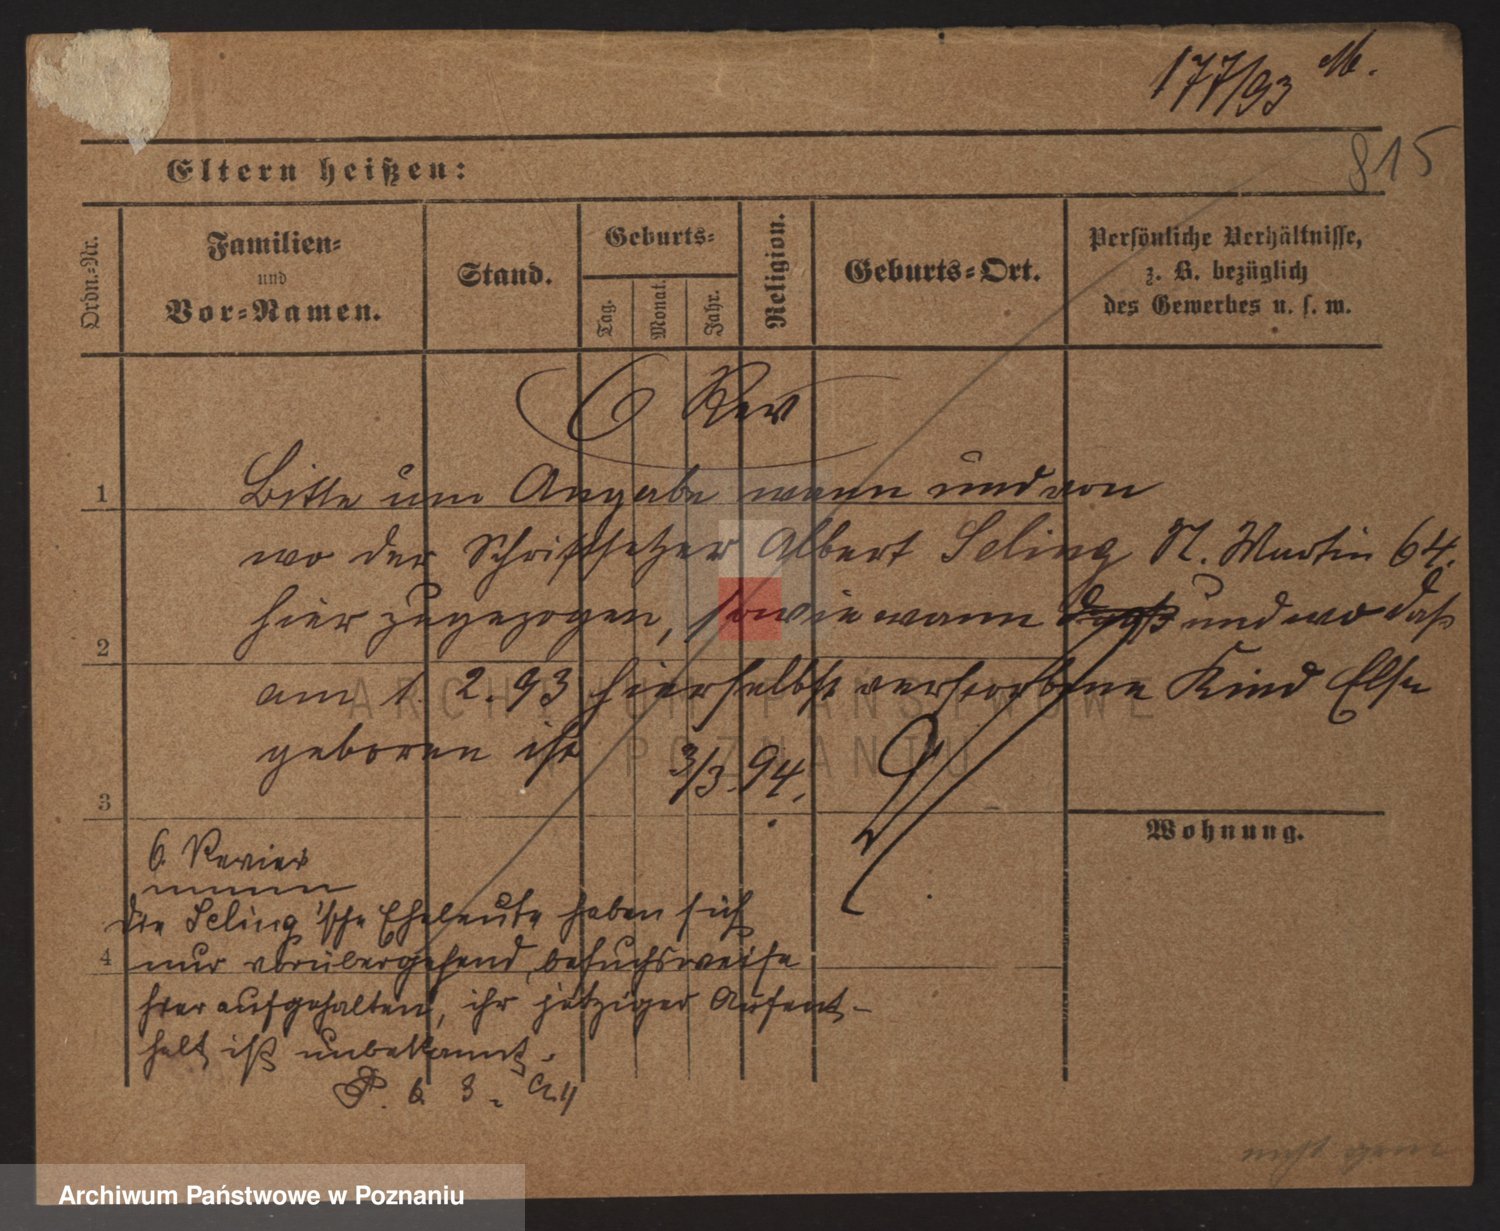 177/93 M.
815
Eltern heißen:
Ordn.-Nr.
Familien-
und
Vor-Namen.
Stand.
Geburts-
Tag.
Monat.
Jahr.
Religion.
Geburts-Ort.
Persönliche Verhältnisse,
z. B. bezüglich
des Gewerbes u. s. w.
6 Rev
1
Bitte um Angabe wann und von
wo der Schriftsetzer Albert Seling St. Martin 64.
hier zugezogen, sowie wann und wo das
2
am 1. 2. 93 hierselbst verstorbene Kind Else
geboren ist
3/3. 94.
3
Wohnung.
6. Revier
Die Seling'sche Eheleute haben sich
4
nur vorübergehend, besuchsweise
hier aufgehalten, ihr jetziger Aufent-
halt ist unbekannt.
P. 6. 3.
nicht
ARCHIWUM PAŃSTWOWE
W POZNANIU
Archiwum Państwowe w Poznaniu